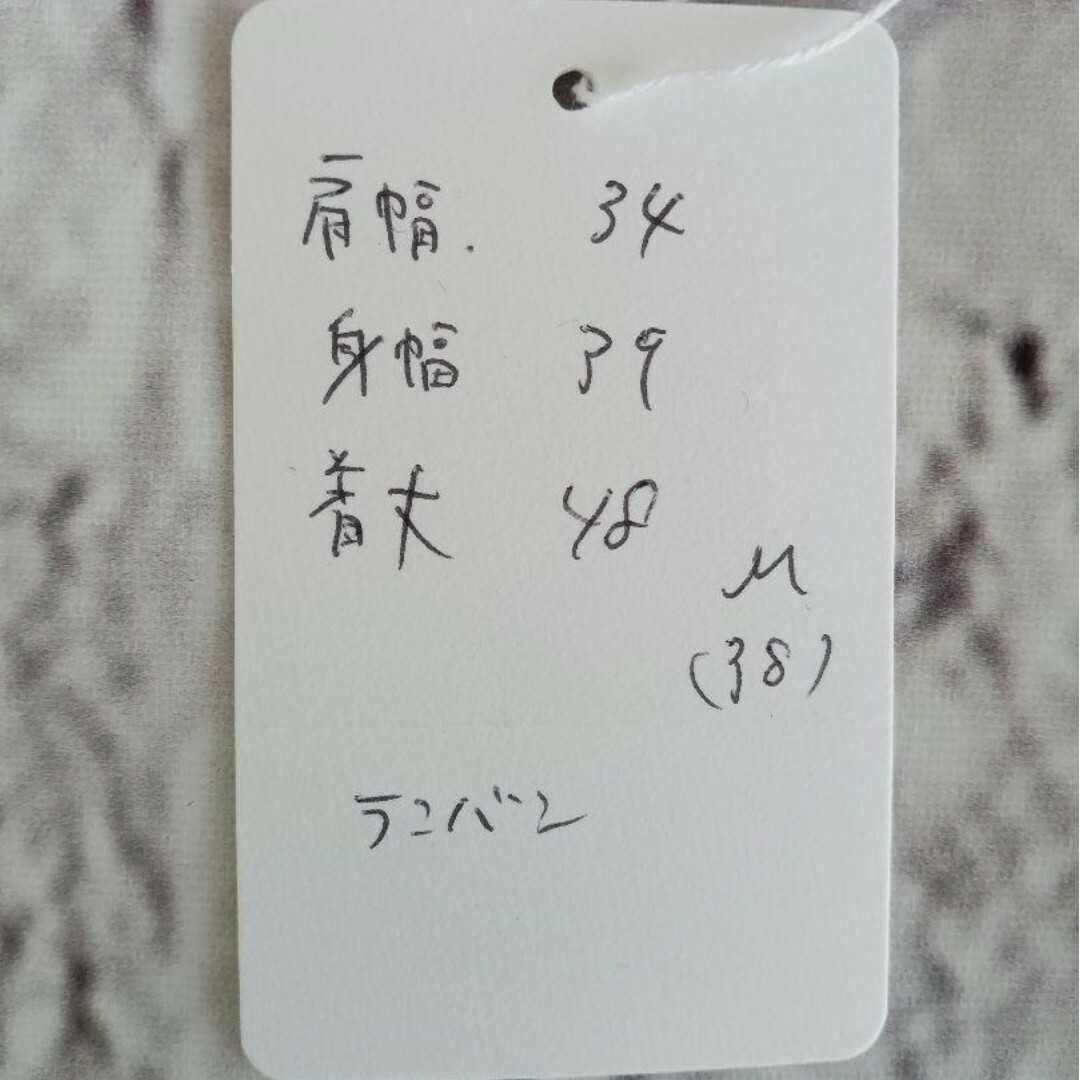 肩幅. 34
身幅 39
着丈 48
M
(38)
ラニバン